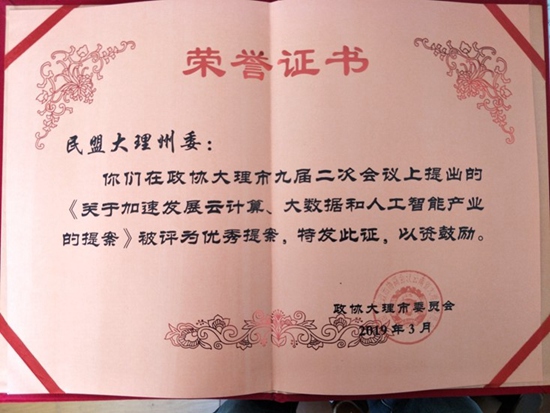 荣誉证书
民盟大理州委：
你们在政协大理市九届二次会议上提出的
《关于加速发展云计算、大数据和人工智能产业
的提案》被评为优秀提案，特发此证，以资鼓励。
政协大理市委员会
2019年3月